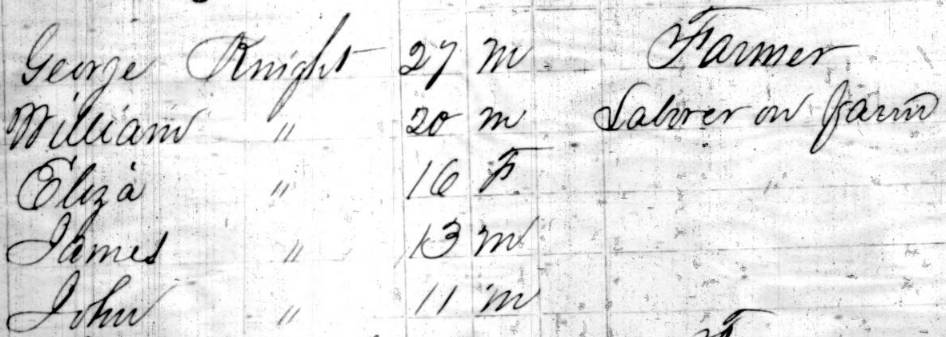 George Knight 27 m Farmer
William " 20 m Laborer on farm
Eliza " 16 F.
James " 13 m
John " 11 m